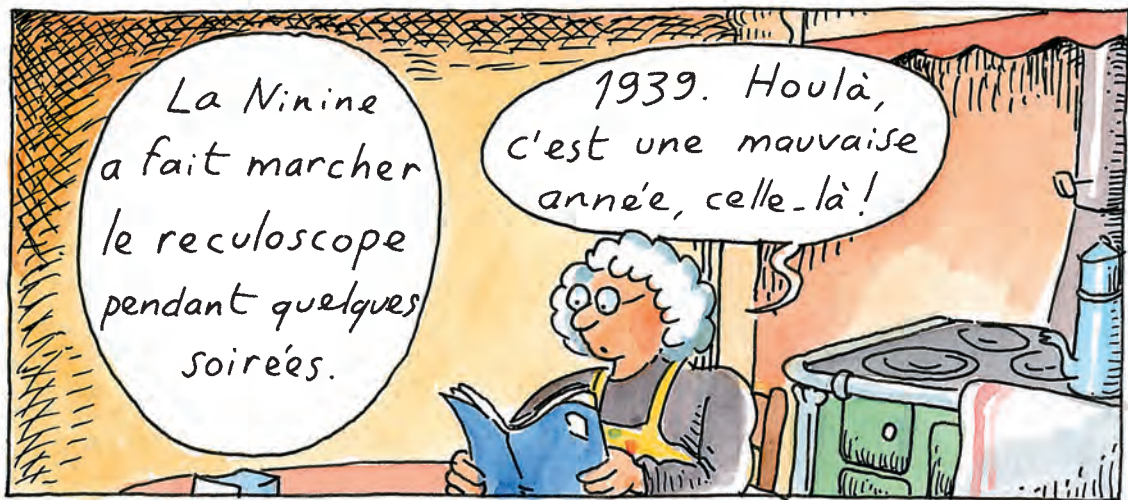 La Ninine
a fait marcher
le reculoscope
pendant quelques
soirées.
1939. Houlà,
c'est une mauvaise
année, celle-là!